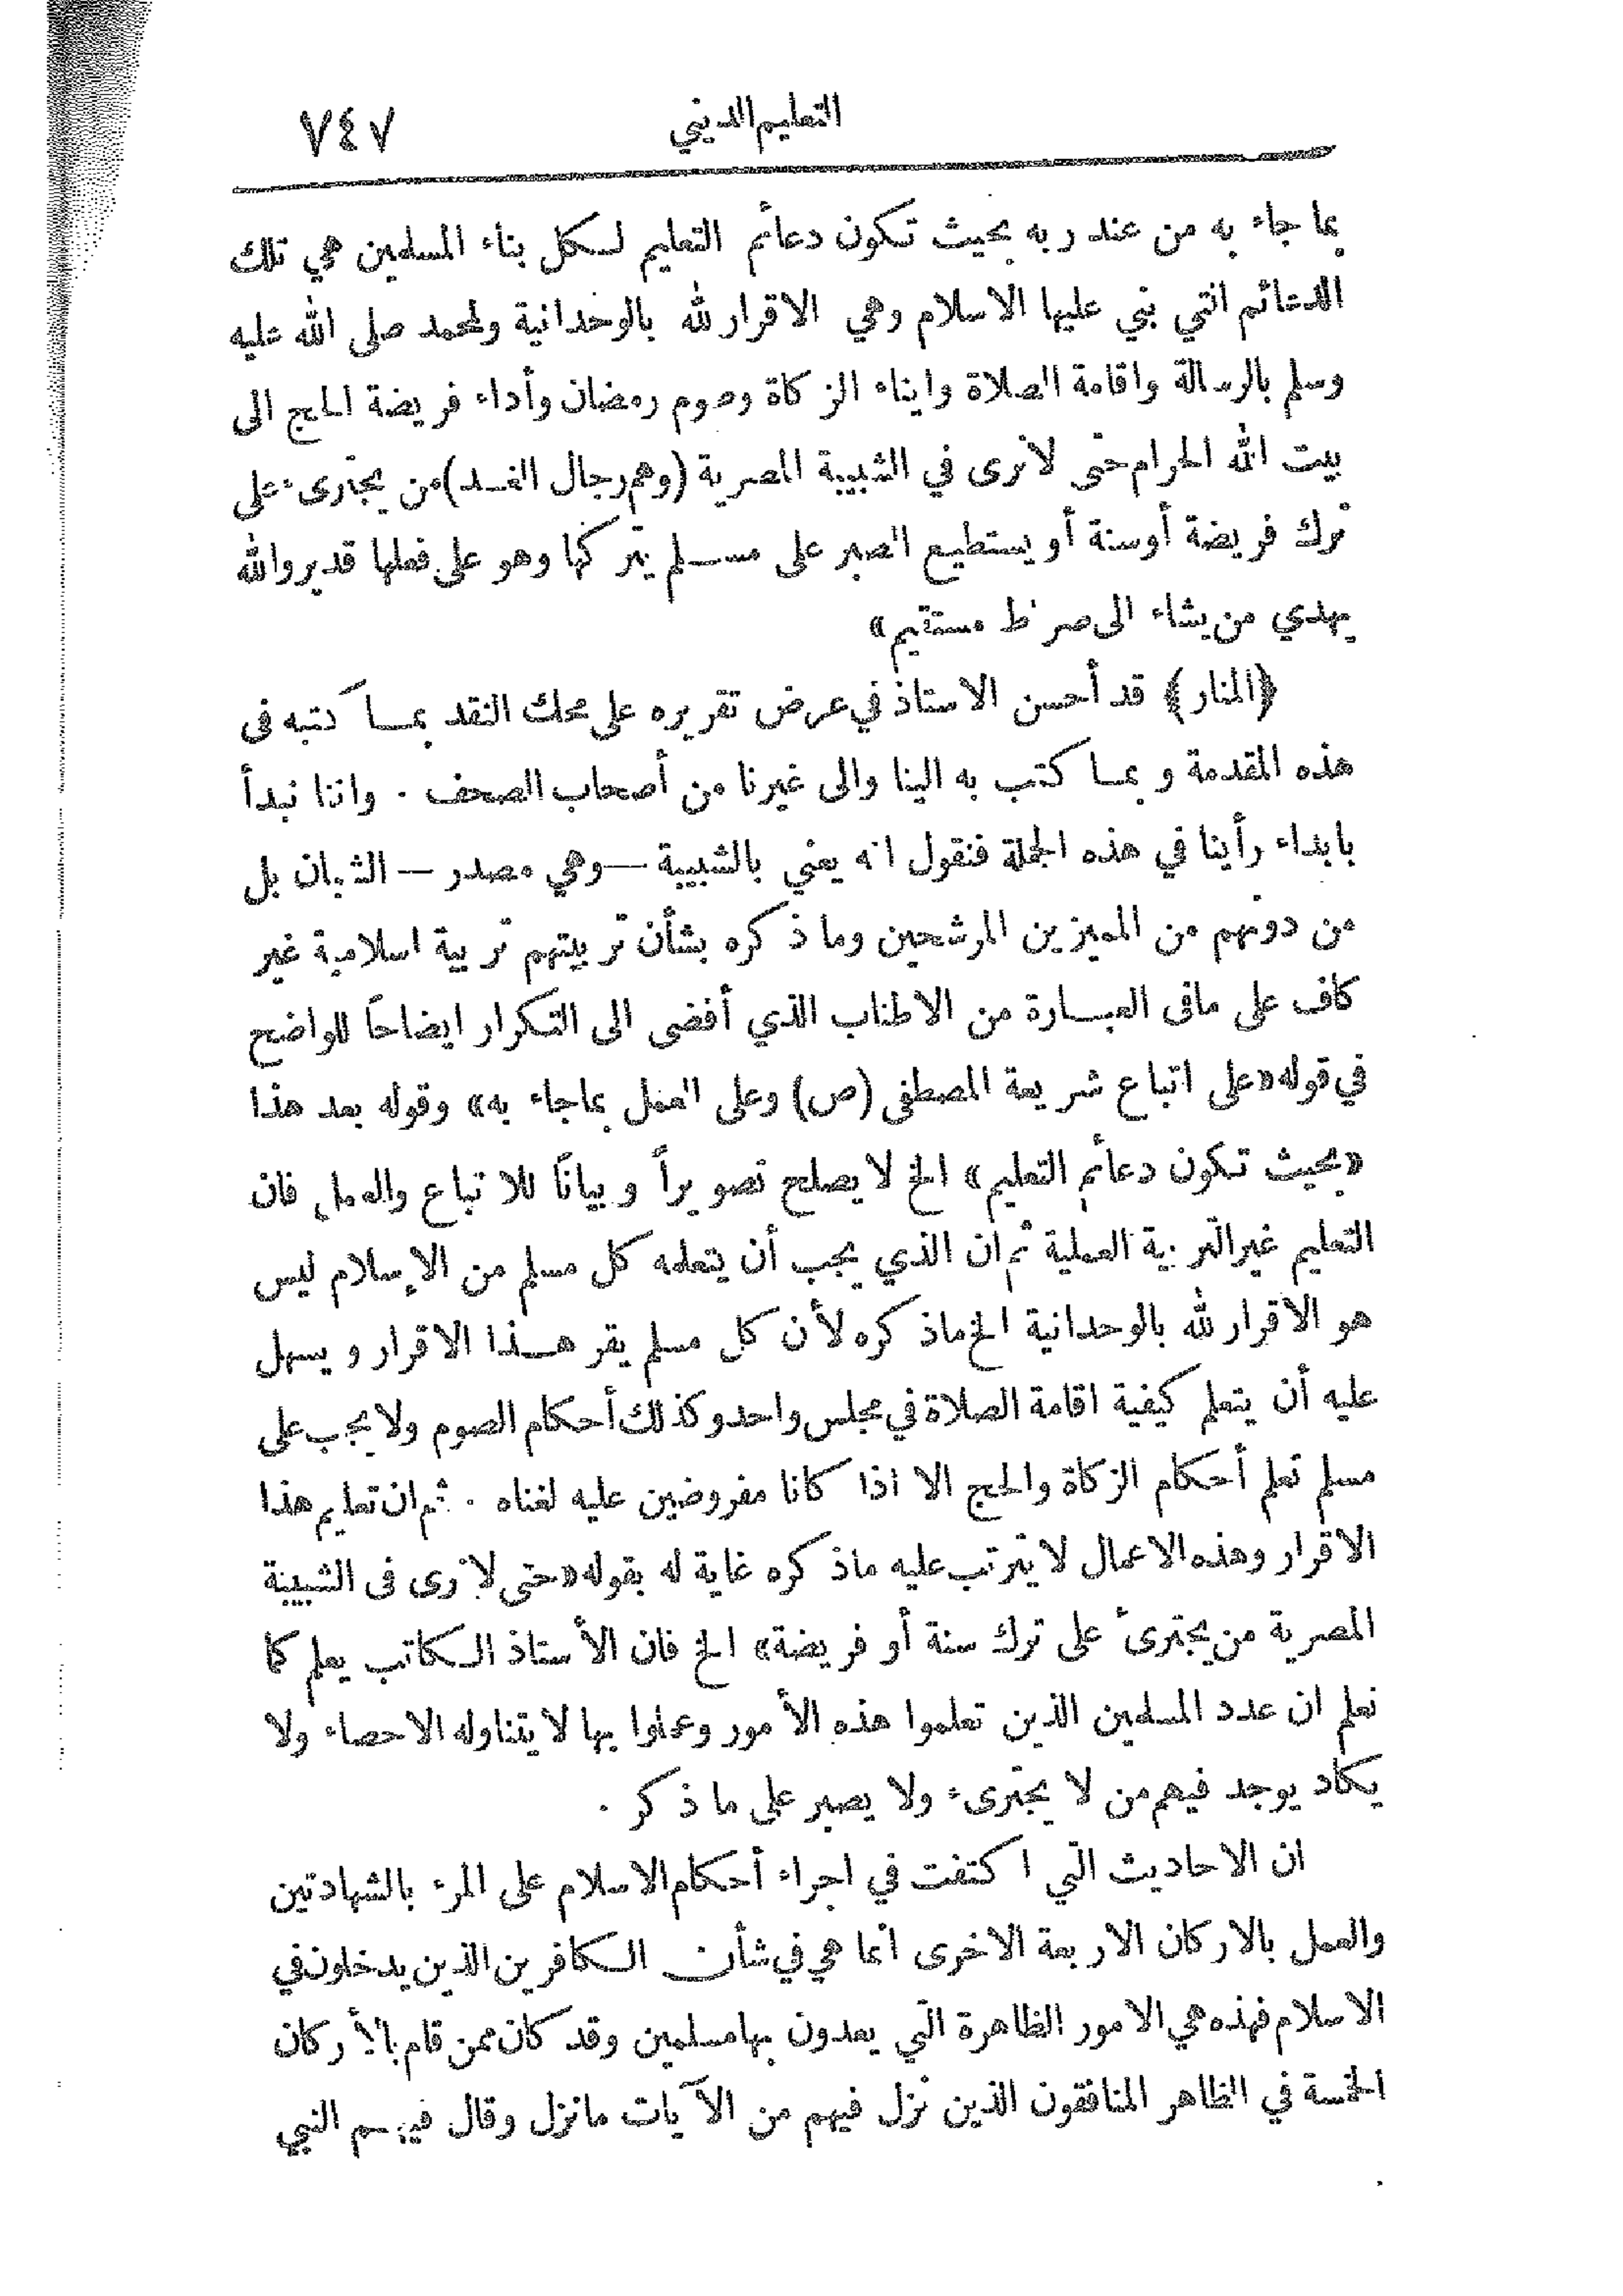 التعليم الديني
٧٤٧
بما جاء به من عند ربه بحيث تكون دعائم التعليم لكل بناء المسلمين هي تلك
الدعائم التي بني عليها الاسلام وهي الاقرار لله بالوحدانية ولمحمد صلى الله عليه
وسلم بالرسالة واقامة الصلاة وايتاء الزكاة وصوم رمضان وأداء فريضة الحج الى
بيت الله الحرام حتى لا نرى في الشبيبة المصرية (وهم رجال الغد) من يجترىء على
ترك فريضة أو سنة أو يستطيع الصبر على مسلم يتركها وهو على فعلها قدير والله
يهدي من يشاء الى صراط مستقيم»
﴿المنار﴾ قد أحسن الاستاذ في عرض تقريره على محك النقد بما كتبه في
هذه المقدمة وبما كتب به الينا والى غيرنا من أصحاب الصحف . واننا نبدأ
بابداء رأينا في هذه الجملة فنقول انه يعني بالشبيبة — وهي مصدر — الشبان بل
من دونهم من المميزين المرشحين وما ذكره بشأن تربيتهم تربية اسلامية غير
كاف على مافى العبارة من الاطناب الذي أفضى الى التكرار ايضاحاً للواضح
في قوله «على اتباع شريعة المصطفى (ص) وعلى العمل بماجاء به» وقوله بعد هذا
«بحيث تكون دعائم التعليم» الخ لا يصلح تصويراً وبياناً للاتباع والعمل فان
التعليم غير التربية العملية ثم ان الذي يجب أن يتعلمه كل مسلم من الإسلام ليس
هو الاقرار لله بالوحدانية الخ ماذكره لأن كل مسلم يقر هذا الاقرار ويسهل
عليه أن يتعلم كيفية اقامة الصلاة في مجلس واحد وكذلك أحكام الصوم ولا يجب على
مسلم تعلم أحكام الزكاة والحج الا اذا كانا مفروضين عليه لغناه . ثم ان تعليم هذا
الاقرار وهذه الاعمال لا يترتب عليه ماذكره غاية له بقوله «حتى لا نرى فى الشبيبة
المصرية من يجترئ على ترك سنة أو فريضة» الخ فان الأستاذ الكاتب يعلم كما
نعلم ان عدد المسلمين الذين تعلموا هذه الأمور وعملوا بها لا يتناوله الاحصاء ولا
يكاد يوجد فيهم من لا يجترىء ولا يصبر على ما ذكر .
ان الاحاديث التي اكتفت في اجراء أحكام الاسلام على المرء بالشهادتين
والعمل بالاركان الاربعة الاخرى انما هي في شأن الكافرين الذين يدخلون في
الاسلام فهذه هي الامور الظاهرة التي يعدون بها مسلمين وقد كان ممن قام بالأركان
الخمسة في الظاهر المنافقون الذين نزل فيهم من الآيات مانزل وقال فيهم النبي